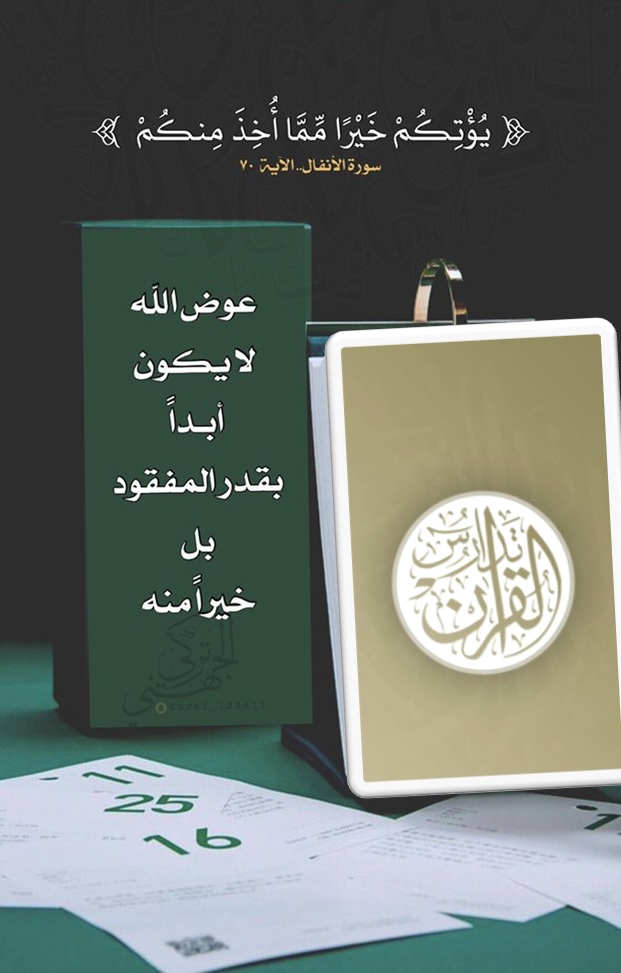 ﴿ يُؤْتِكُمْ خَيْرًا مِّمَّا أُخِذَ مِنكُمْ ﴾
سورة الأنفال..الآية ٧٠
عوض الله
لا يكون
أبداً
بقدر المفقود
بل
خيراً منه
تدارس
القرآن
تركي
الجهني
11
25
16